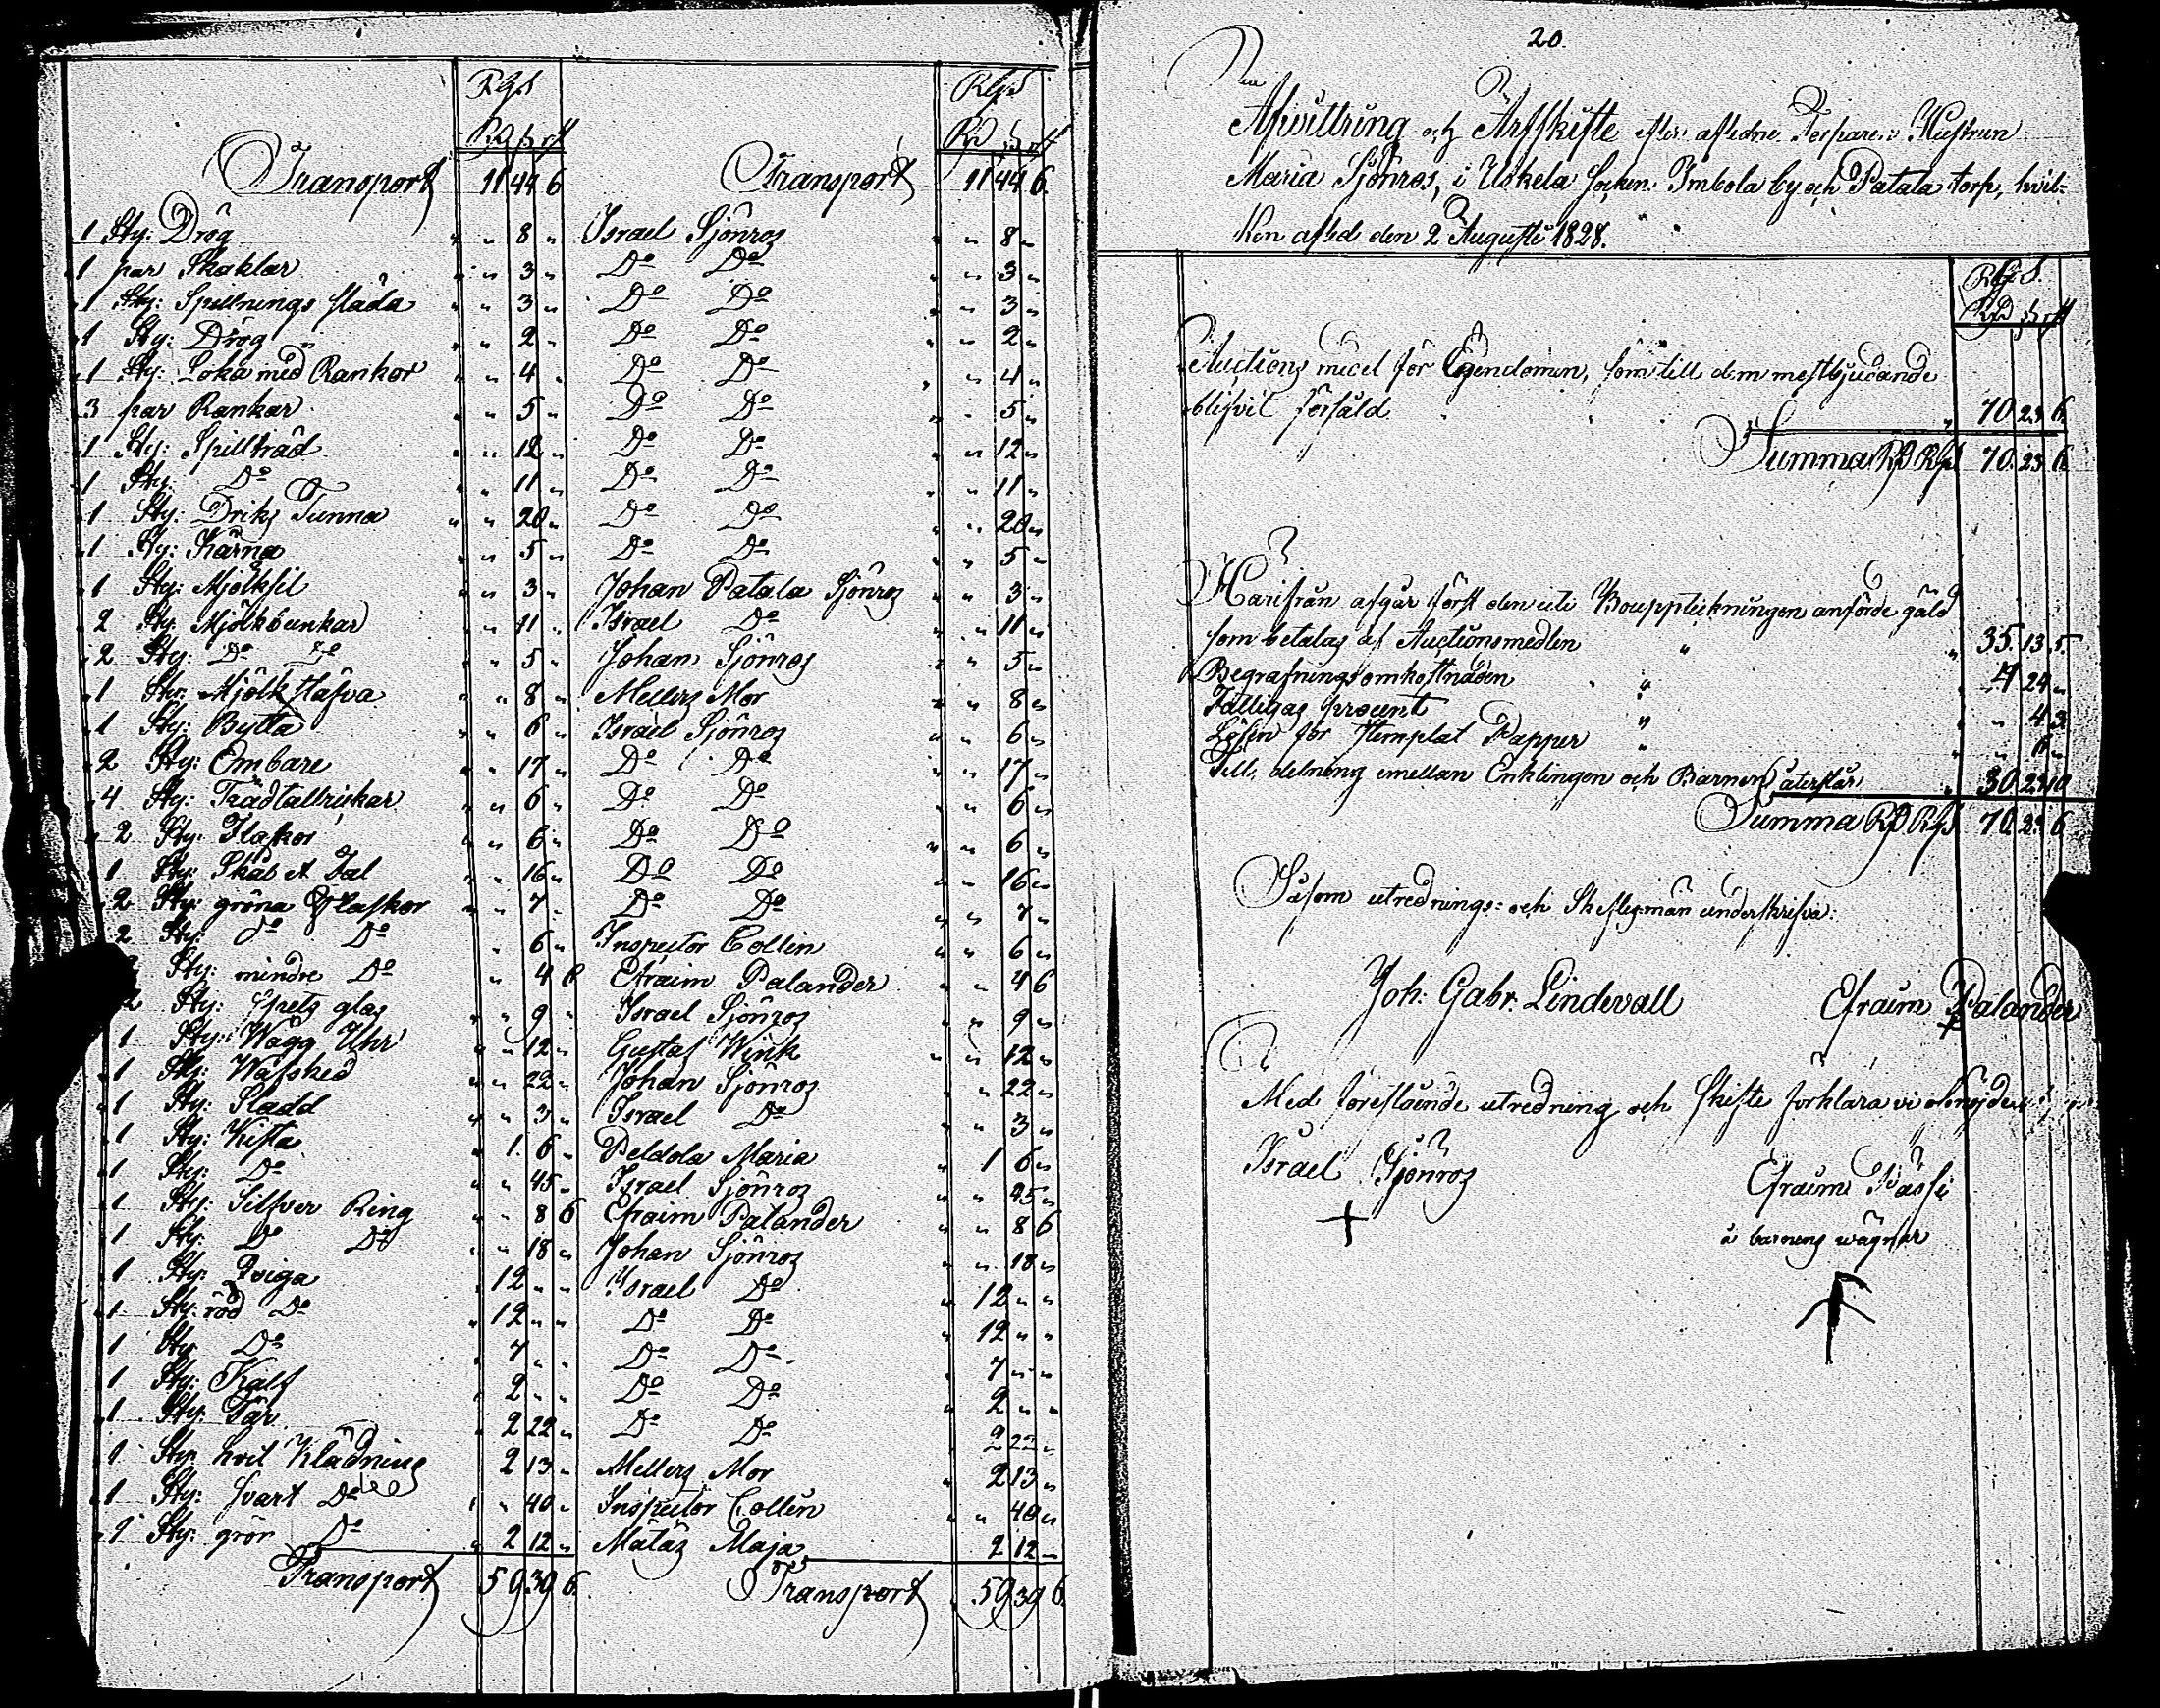 RGS RGS
RD ß rſt RD ß rſt
Transport 11 44 6 Transport 11 44 6
1 Sty: Drög " " 8 " Israel Sjönros " " 8 "
1 par Skaklar " " 3 " Do Do " " 3 "
1 Sty: Spillnings släda " " 3 " Do Do " " 3 "
1 Sty: Drög " " 2 " Do Do " " 2 "
1 Sty: Loka med Rankor " " 4 " Do Do " " 4 "
3 par Rankar " " 5 " Do Do " " 5 "
1 Sty: Spillträd " " 12 " Do Do " " 12 "
1 Sty: Do " " 11 " Do Do " " 11 "
1 Sty: Driks Tunna " " 20 " Do Do " " 20 "
1 Sty: Kärna " " 5 " Do Do " " 5 "
1 Sty: Mjölksil " " 3 " Johan Patala Sjönros " " 3 "
2 Sty: Mjölkbunkar " " 11 " Israel Do " " 11 "
2 Sty: Do Do " " 5 " Johan Sjönros " " 5 "
1 Sty: Mjölk " " 8 " Mellers Mor " " 8 "
1 Sty: Bytta " " 6 " Israel Sjönros " " 6 "
2 Sty: Embare " " 17 " Do Do " " 17 "
4 Sty: Trädtallrickar " " 6 " Do Do " " 6 "
2 Sty: Flaskor " " 6 " Do Do " " 6 "
1 Sty: Skåb " " 16 " Do Do " " 16 "
2 Sty: gröna Flaskor " " 7 " Do Do " " 7 "
2 Sty: Do Do " 6 " Inspector Collin " " 6 "
Sty: mindre Do " 4 6 Efraim Palander " " 4 6
2 Sty: spets glas " " 9 " Israel Sjönros " " 9 "
1 Sty: Wägg Uhr " " 12 " Gustaf Wink " " 12 "
1 Sty: Wäfsked " " 22 " Johan Sjönros " " 22 "
1 Sty: Sladd " " 3 " Israel Do " " 3 "
1 Sty: Kista " 1 6 " Peldola Maria " 1 6 "
1 Sty: Do " " 45 " Israel Sjönros " " 45 "
1 Sty: Silfver Ring " " 8 6 Efraim Palander " " 8 6
1 Sty: Do Do " " 18 " Johan Sjönros " " 18 "
1 Sty: Qviga 12 " " Israel Do " 12 " "
1 Sty: röd Do " 12 " " Do Do " 12 " "
1 Sty: Do " 7 " " Do Do " 7 " "
1 Sty: Kalf " 2 " " Do Do " 2 " "
1 Sty: Får 2 22 " Do Do 2 22 "
1 Sty: hvit Klädning 2 13 " Mellers Mor " 2 13 "
1 Sty: svart Do " " 40 " Inspector Collin " " 40 "
1 Sty: grön Do " 2 12 " Matas Maja 2 12 "
Transport 59 39 6 Transport 59 39 6
20.
Afvittring och Arfskifte efter aflidne Torparens Hustrun
Maria Sjönros, i Uskela Socken: Imbola by och Patala torp, hvil-
ken afled den 2 Augusti 1828.
RGS.
RD ß rſt
Auctions medel för Egendomen, som till dem mestbjudande
blifvit försåld " 70 23 6
Summa RD RGS 70. 23 6
Härifrån afgår först den uti Bouppteckningen anförde gäld
som betalas af Auctionsmedlen " " 35. 13 5.
Begrafningsomkostnaden " " 4 24 "
Fattigas procent " " " 4 3
Lösen för stemplat Papper " " " 6 "
Till delning emellan Enklingen och Barnen återstår " 30 23 10
Summa RD RGS 70 23 6
Såsom utrednings- och Skiftesmän underskrifva:
Joh: Gabr: Lindevall Efraim Palander
Med föreståénde utredning och skifte förklara vi oss nöjde
Israel Sjönros Efraim
å barnens wägnar